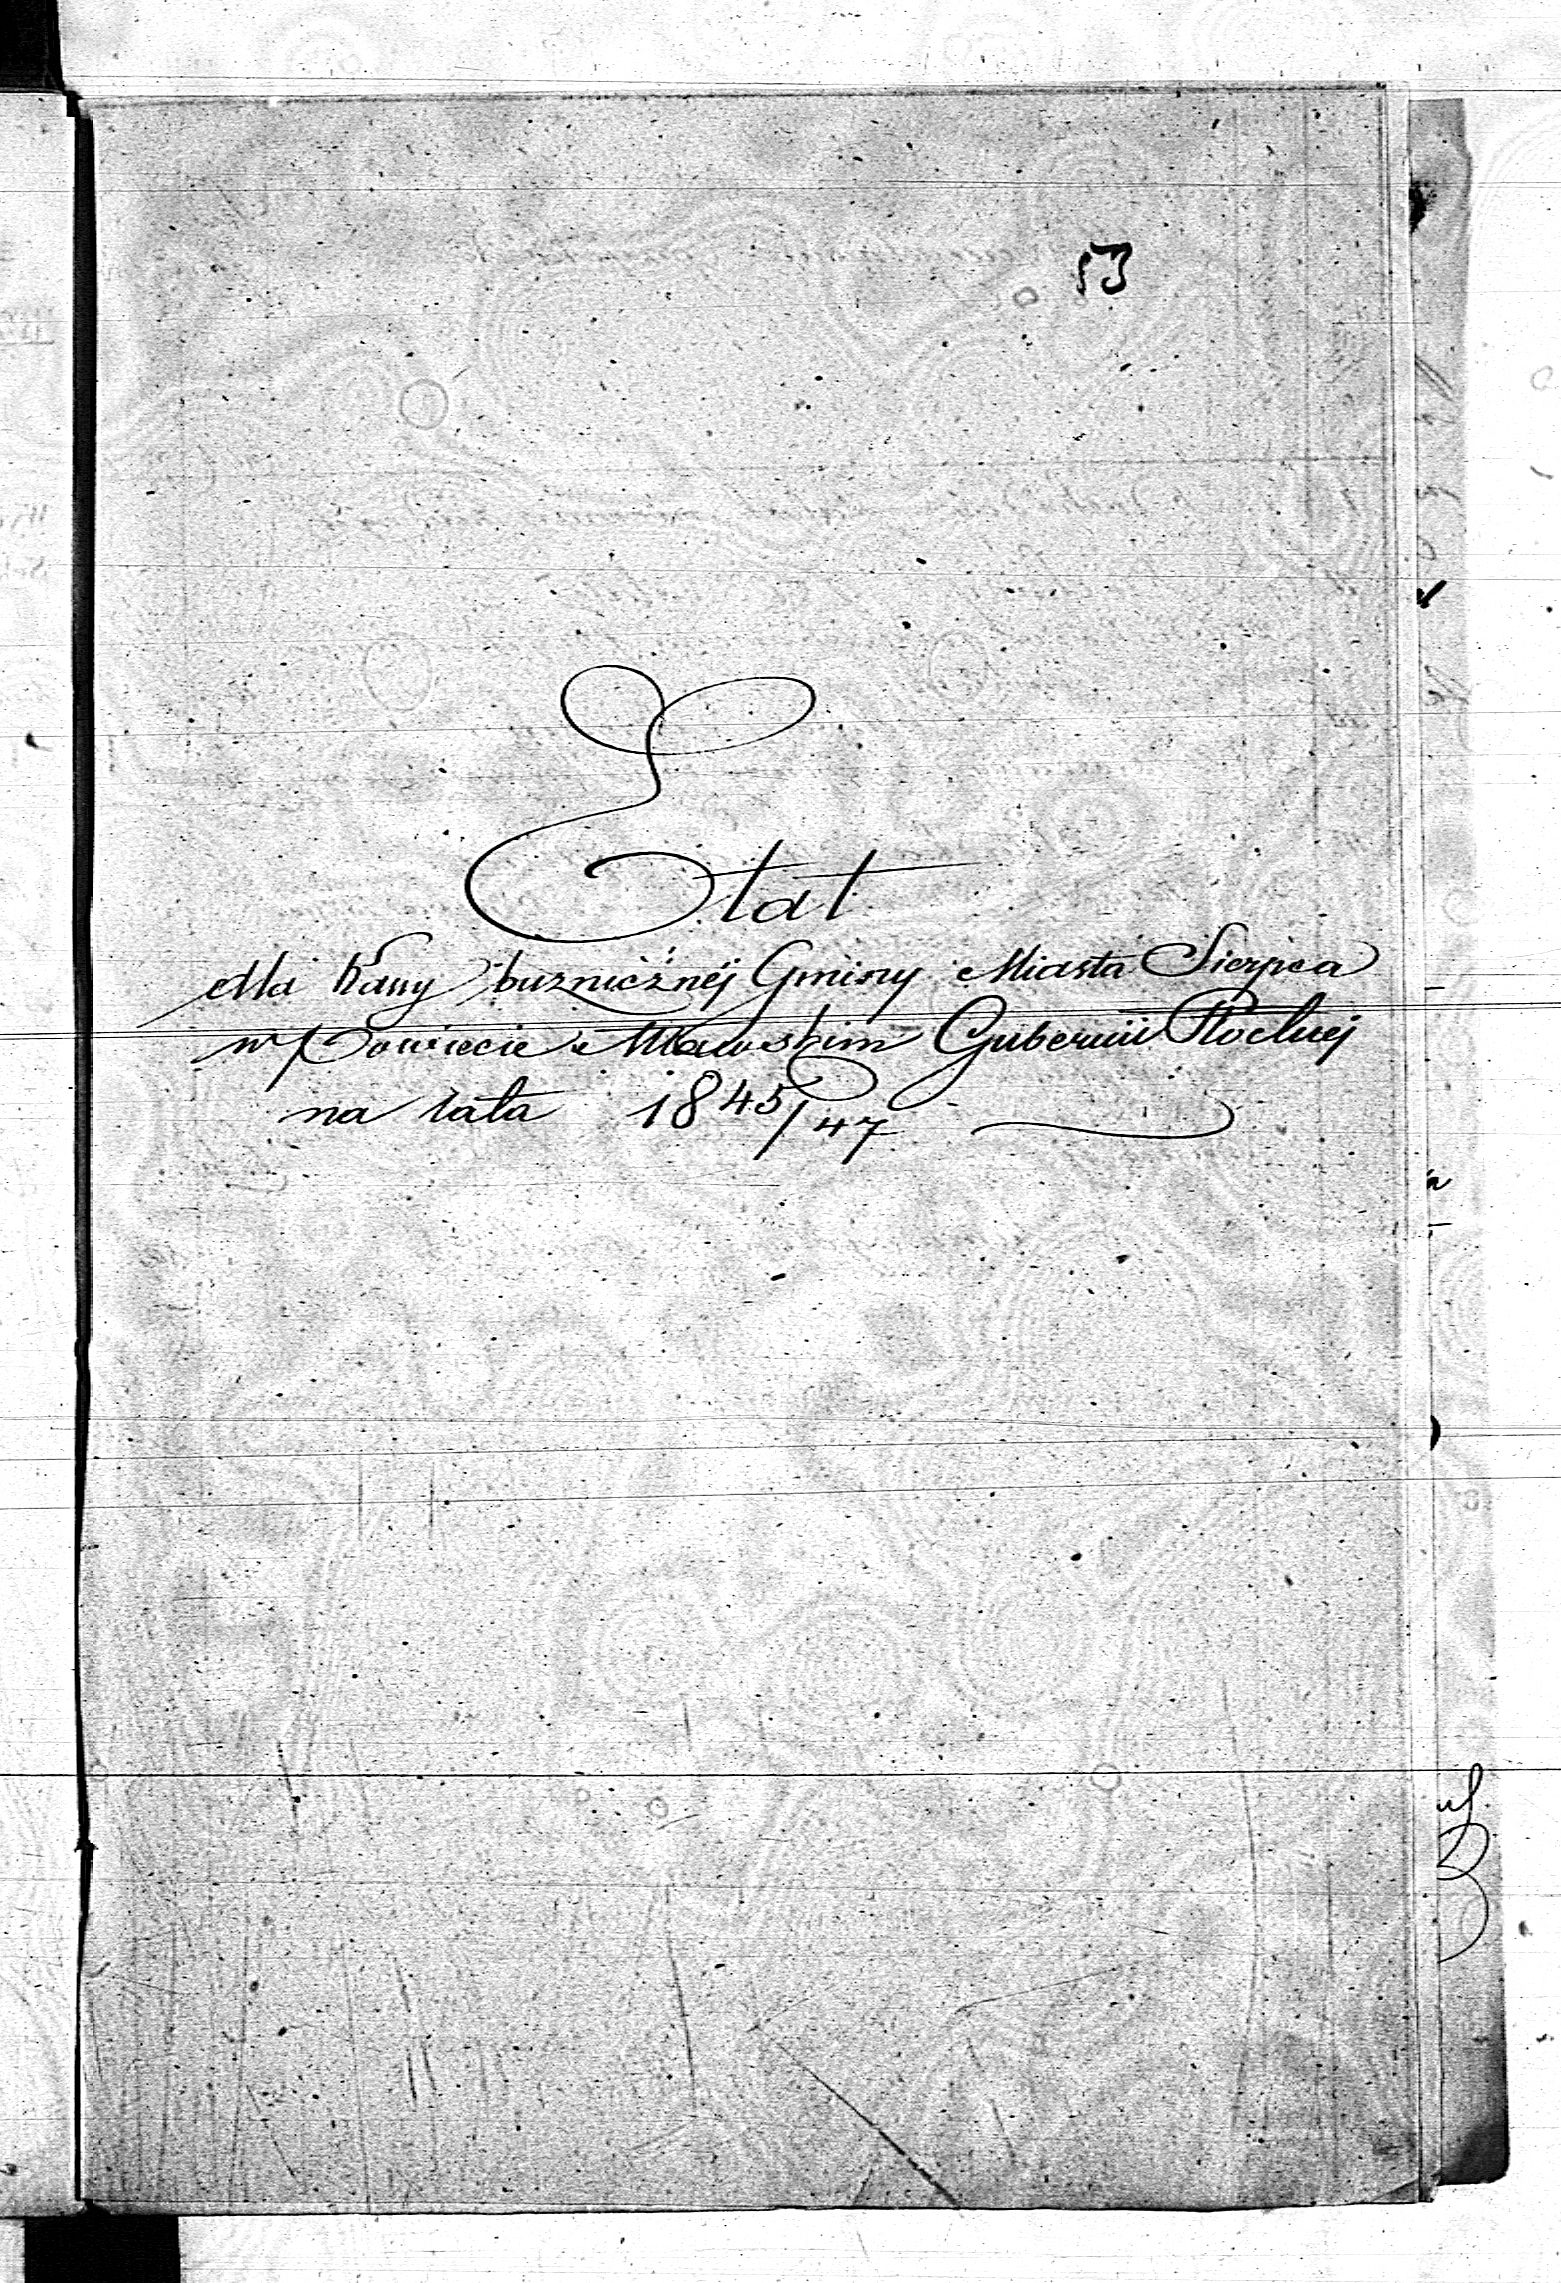 53
Etat
dla Kassy bużnicznéj Gminy Miasta Sierpca
w Powiecie Mławskim Gubernii Płockiéj
na lata 1845/47